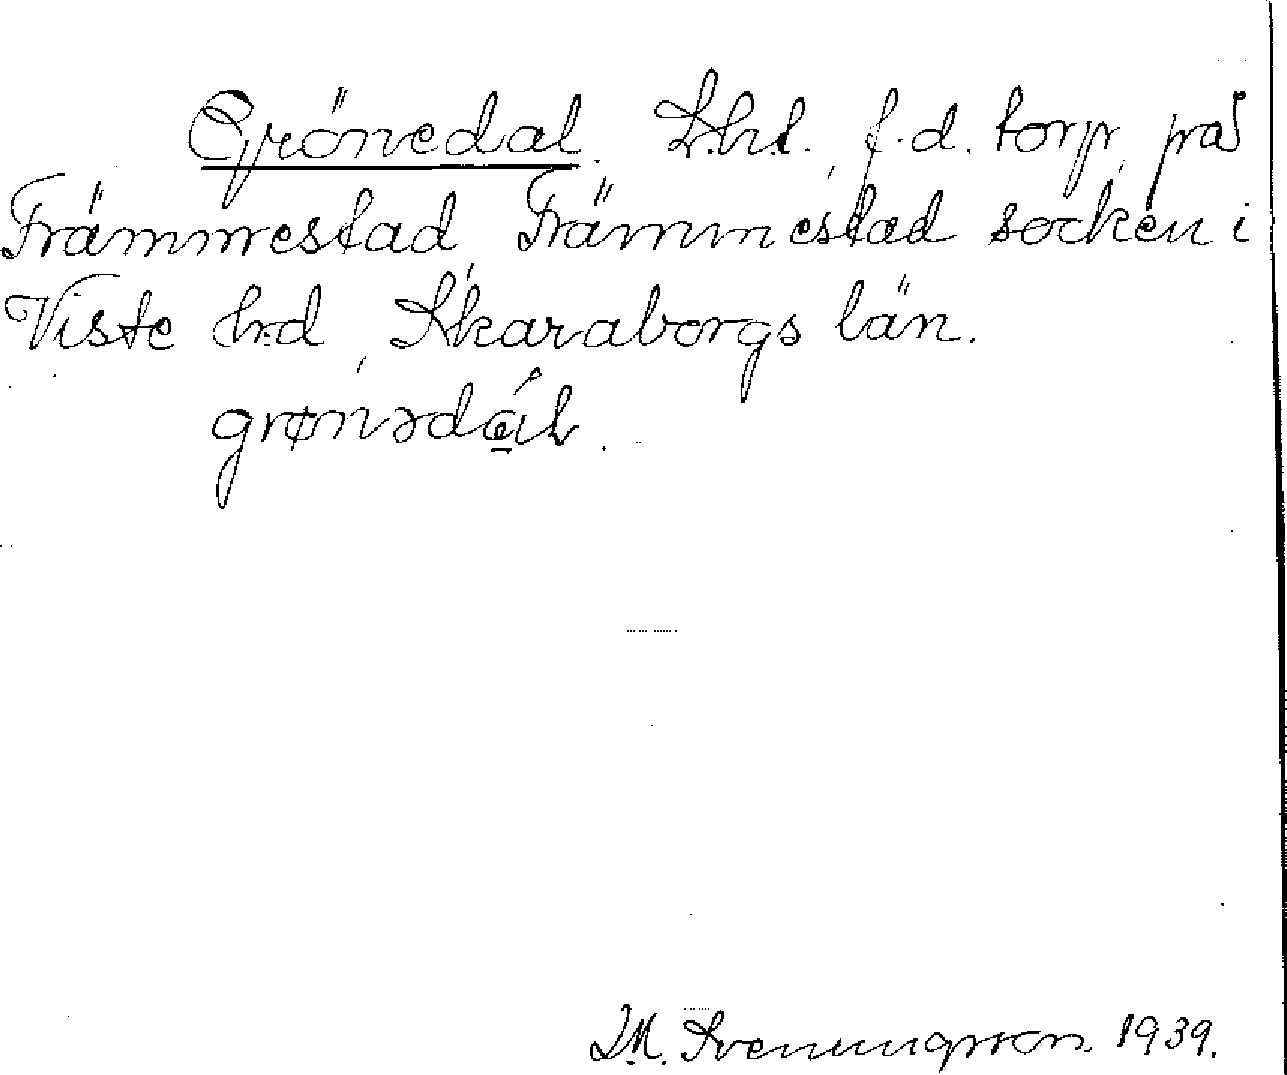 Grönedal. L.hl., f.d. torp på
Främmestad, Främmestad socken i
Viste hd, Skaraborgs län.
grønədál.
M. Svenungsson 1939.